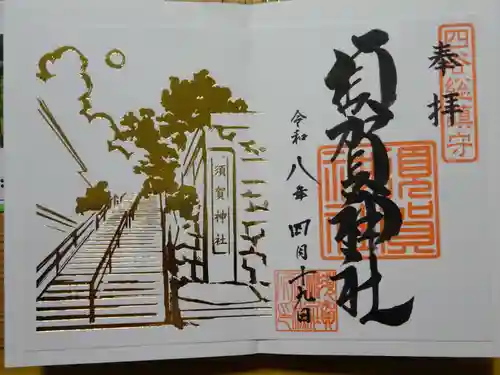 四谷総鎮守
奉拝
須賀神社
令和八年四月十九日
須賀神社